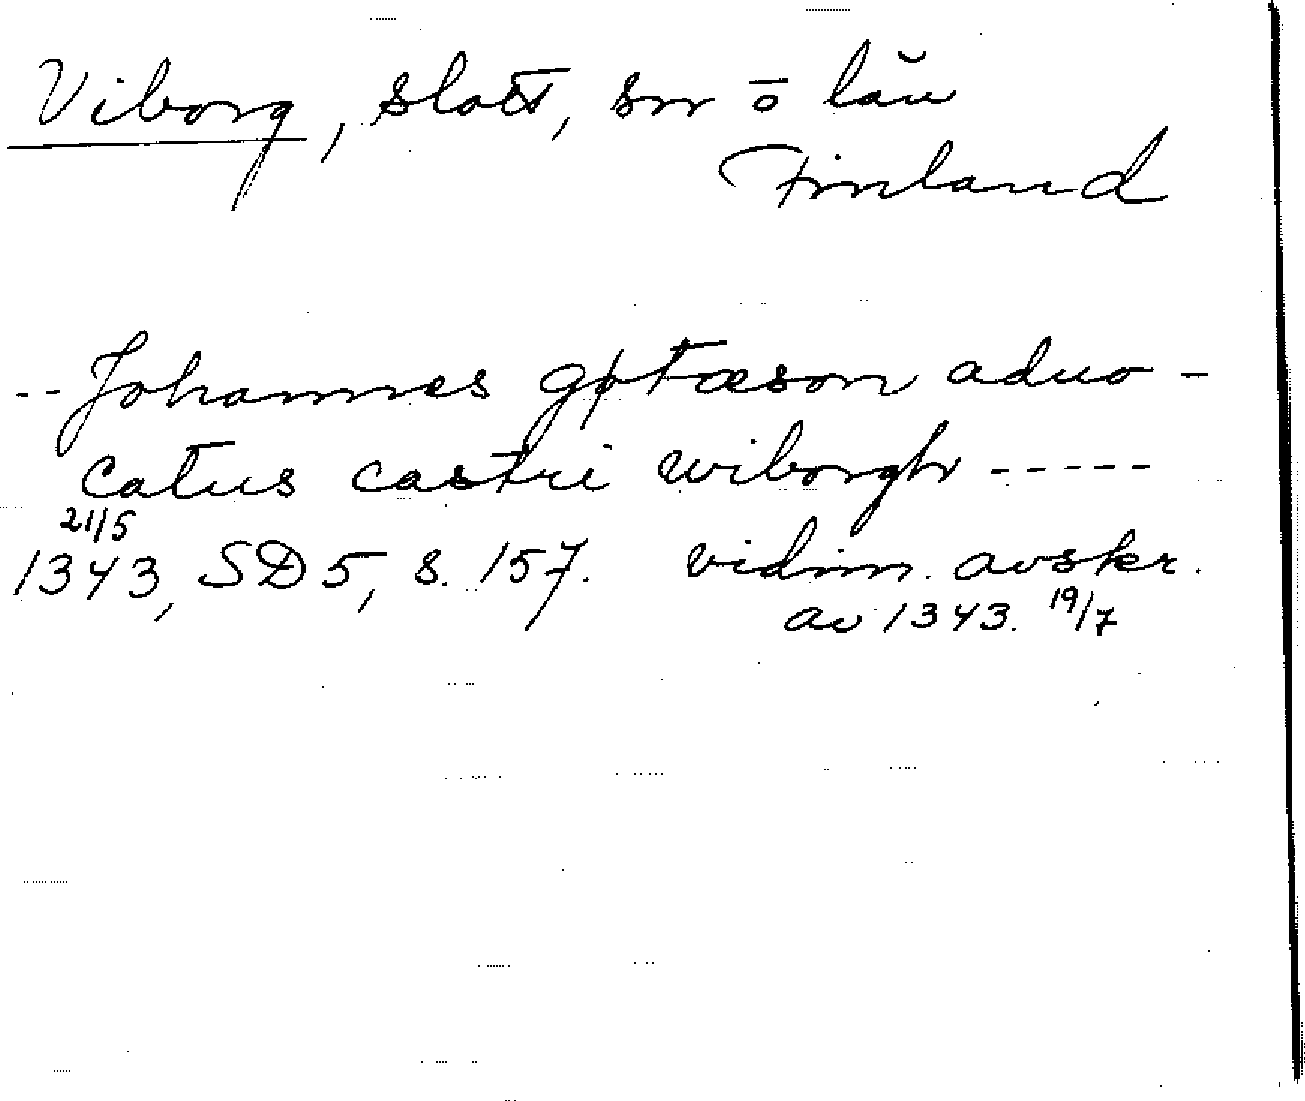 Viborg, slott, sn o län
Finland
-- Johannes gøtæson aduo-
catus castri wiborgh -----
21/5
1343, SD 5, s. 157. vidim. avskr.
av 1343. 19/7